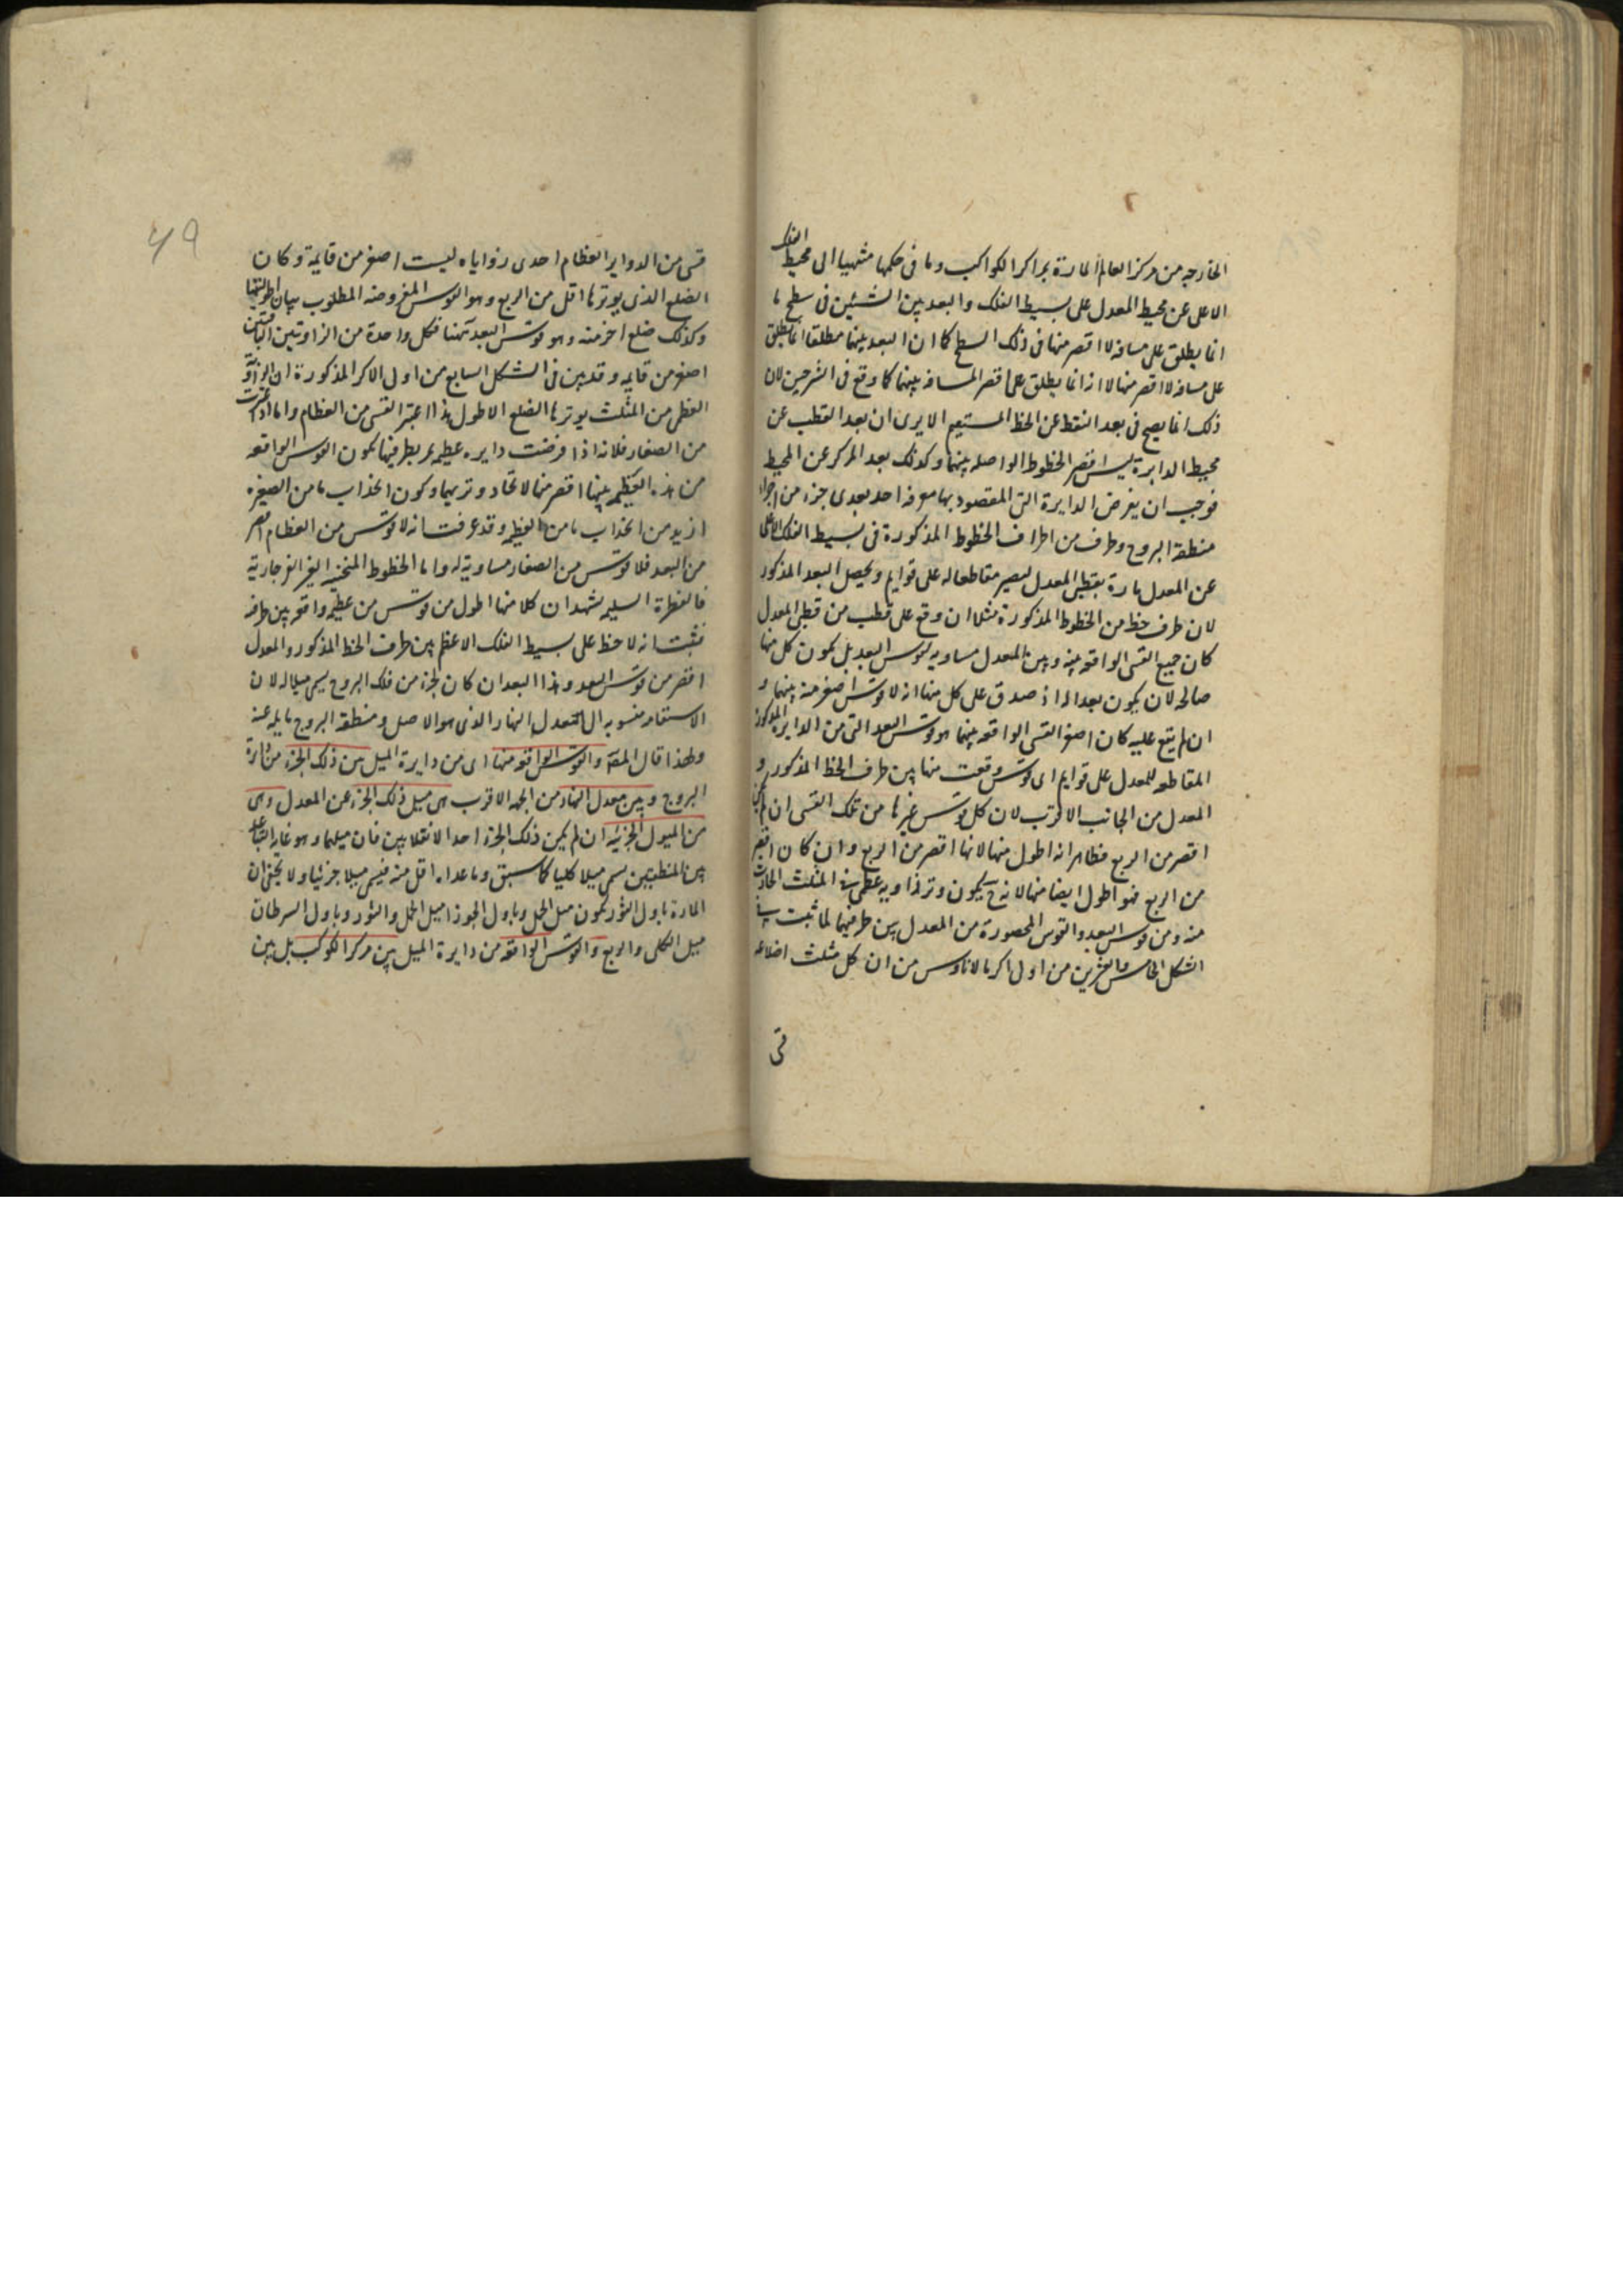 الخارجه من مركز العالم المارة بمراكز الكواكب وما فى حكمها منتهيا الى محيط الفلك
الاعلى عن محيط المعدل على بسيط الفلك والبعد بين الشيئين فى سطح ما
انما يطلق على مسافه لا اقصر منها فى ذلك السطح كما ان البعد بينهما مطلقا انما يطلق
على مسافه لا اقصر منها لا انه انما يطلق على اقصر المسافه بينهما كما وقع فى الشرحين لان
ذلك انما يصح فى بعد النقط عن الخط المستقيم الا يرى ان بعد القطب عن
محيط الدايرة ليس اقصر الخطوط الواصله بينهما وكذلك بعد المركز عن المحيط
فوجب ان يفرض الدايرة التى المقصود بها معرفه احد بعدى جزء من اجزاء
منطقه البروج وطرف من اطراف الخطوط المذكورة فى بسيط الفلك الاعلى
عن المعدل مارة بقطبى المعدل ليصير مقاطعا له على قوايم ويحصل البعد المذكور
لان طرف خط من الخطوط المذكورة مثلا ان وقع على قطب من قطبى المعدل
كان جميع القسى الواقعه بينه وبين المعدل مساويه لقوس البعد بل يكون كل منها
صالحه لان يكون بعدا له اذ صدق على كل منها انه لا قوس اصغر منه بينهما و
ان لم يقع عليه كان اصغر القسى الواقعه بينهما هو قوس البعد التى من الدايره المذكورة
المقاطعه للمعدل على قوايم اى قوس وقعت منها بين طرف الخط المذكور و
المعدل من الجانب الاقرب لان كل قوس غيرها من تلك القسى ان لم يكن
اقصر من الربع فظاهر انه اطول منها لانها اقصر من الربع وان كان اقصر
من الربع فهو اطول ايضا منها لانه ح يكون وتر زاويه عظمى فى المثلث الحادث
منه ومن قوس البعد والقوس المحصورة من المعدل بين طرفيهما لما ثبت فى
الشكل الخامس والعشرين من اول اكر مالاناوس من ان كل مثلث اضلاعه
قسى
٤٩
قسى من الدواير العظام احدى زواياه ليست اصغر من قايمة وكان
الضلع الذى يوترها اقل من الربع وهو القوس المفروضه المطلوب بيان اطوليتها
وكذلك ضلع اخر منه وهو قوس البعد ههنا فكل واحدة من الزاويتين الباقيتين
اصغر من قايمه وقد بين فى الشكل السابع من اول الاكر المذكورة ان الزاوية
العظمى من المثلث يوترها الضلع الاطول هذا اذا اعتبر القسى من العظام واما اذا اعتبرت
من الصغار فلانه اذا فرضت دايره عظيمه تمر بطرفيها يكون القوس الواقعه
من هذه العظيمه بينهما اقصر منها لاتحاد وتريهما وكون انحداب ما من الصغيره
ازيد من انحداب ما من العظيمه وقد عرفت انه لا قوس من العظام اقصر
من البعد فلا قوس من الصغار مساويه له واما الخطوط المنحنيه الغير الفرجارية
فالفطرة السليمه تشهد ان كلا منها اطول من قوس من عظيمه واقعه بين طرفه
فثبت انه لا خط على بسيط الفلك الاعظم بين طرف الخط المذكور والمعدل
اقصر من قوس البعد وهذا البعد ان كان لجزء من فلك البروج يسمى ميلا له لان
الاستقامه منسوبه الى معدل النهار الذى هو الاصل ومنطقه البروج مايله عنه
ولهذا قال المصنف والقوس الواقعه منها اى من دايرة الميل بين ذلك الجزء من دايرة
البروج وبين معدل النهار من الجهه الاقرب هى ميل ذلك الجزء عن المعدل وهى
من الميول الجزئيه ان لم يكن ذلك الجزء احد الانقلابين فان ميلهما وهو غايه التباعد
بين المنطقتين يسمى ميلا كليا كما سبق وما عداه اقل منه فيسمى ميلا جزئيا ولا يخفى ان
المارة باول الثور يكون ميل الحمل وباول الجوزا ميل الحمل والثور وباول السرطان
ميل الكلى والربع والقوس الواقعه من دايرة الميل بين مركز الكوكب بل بين